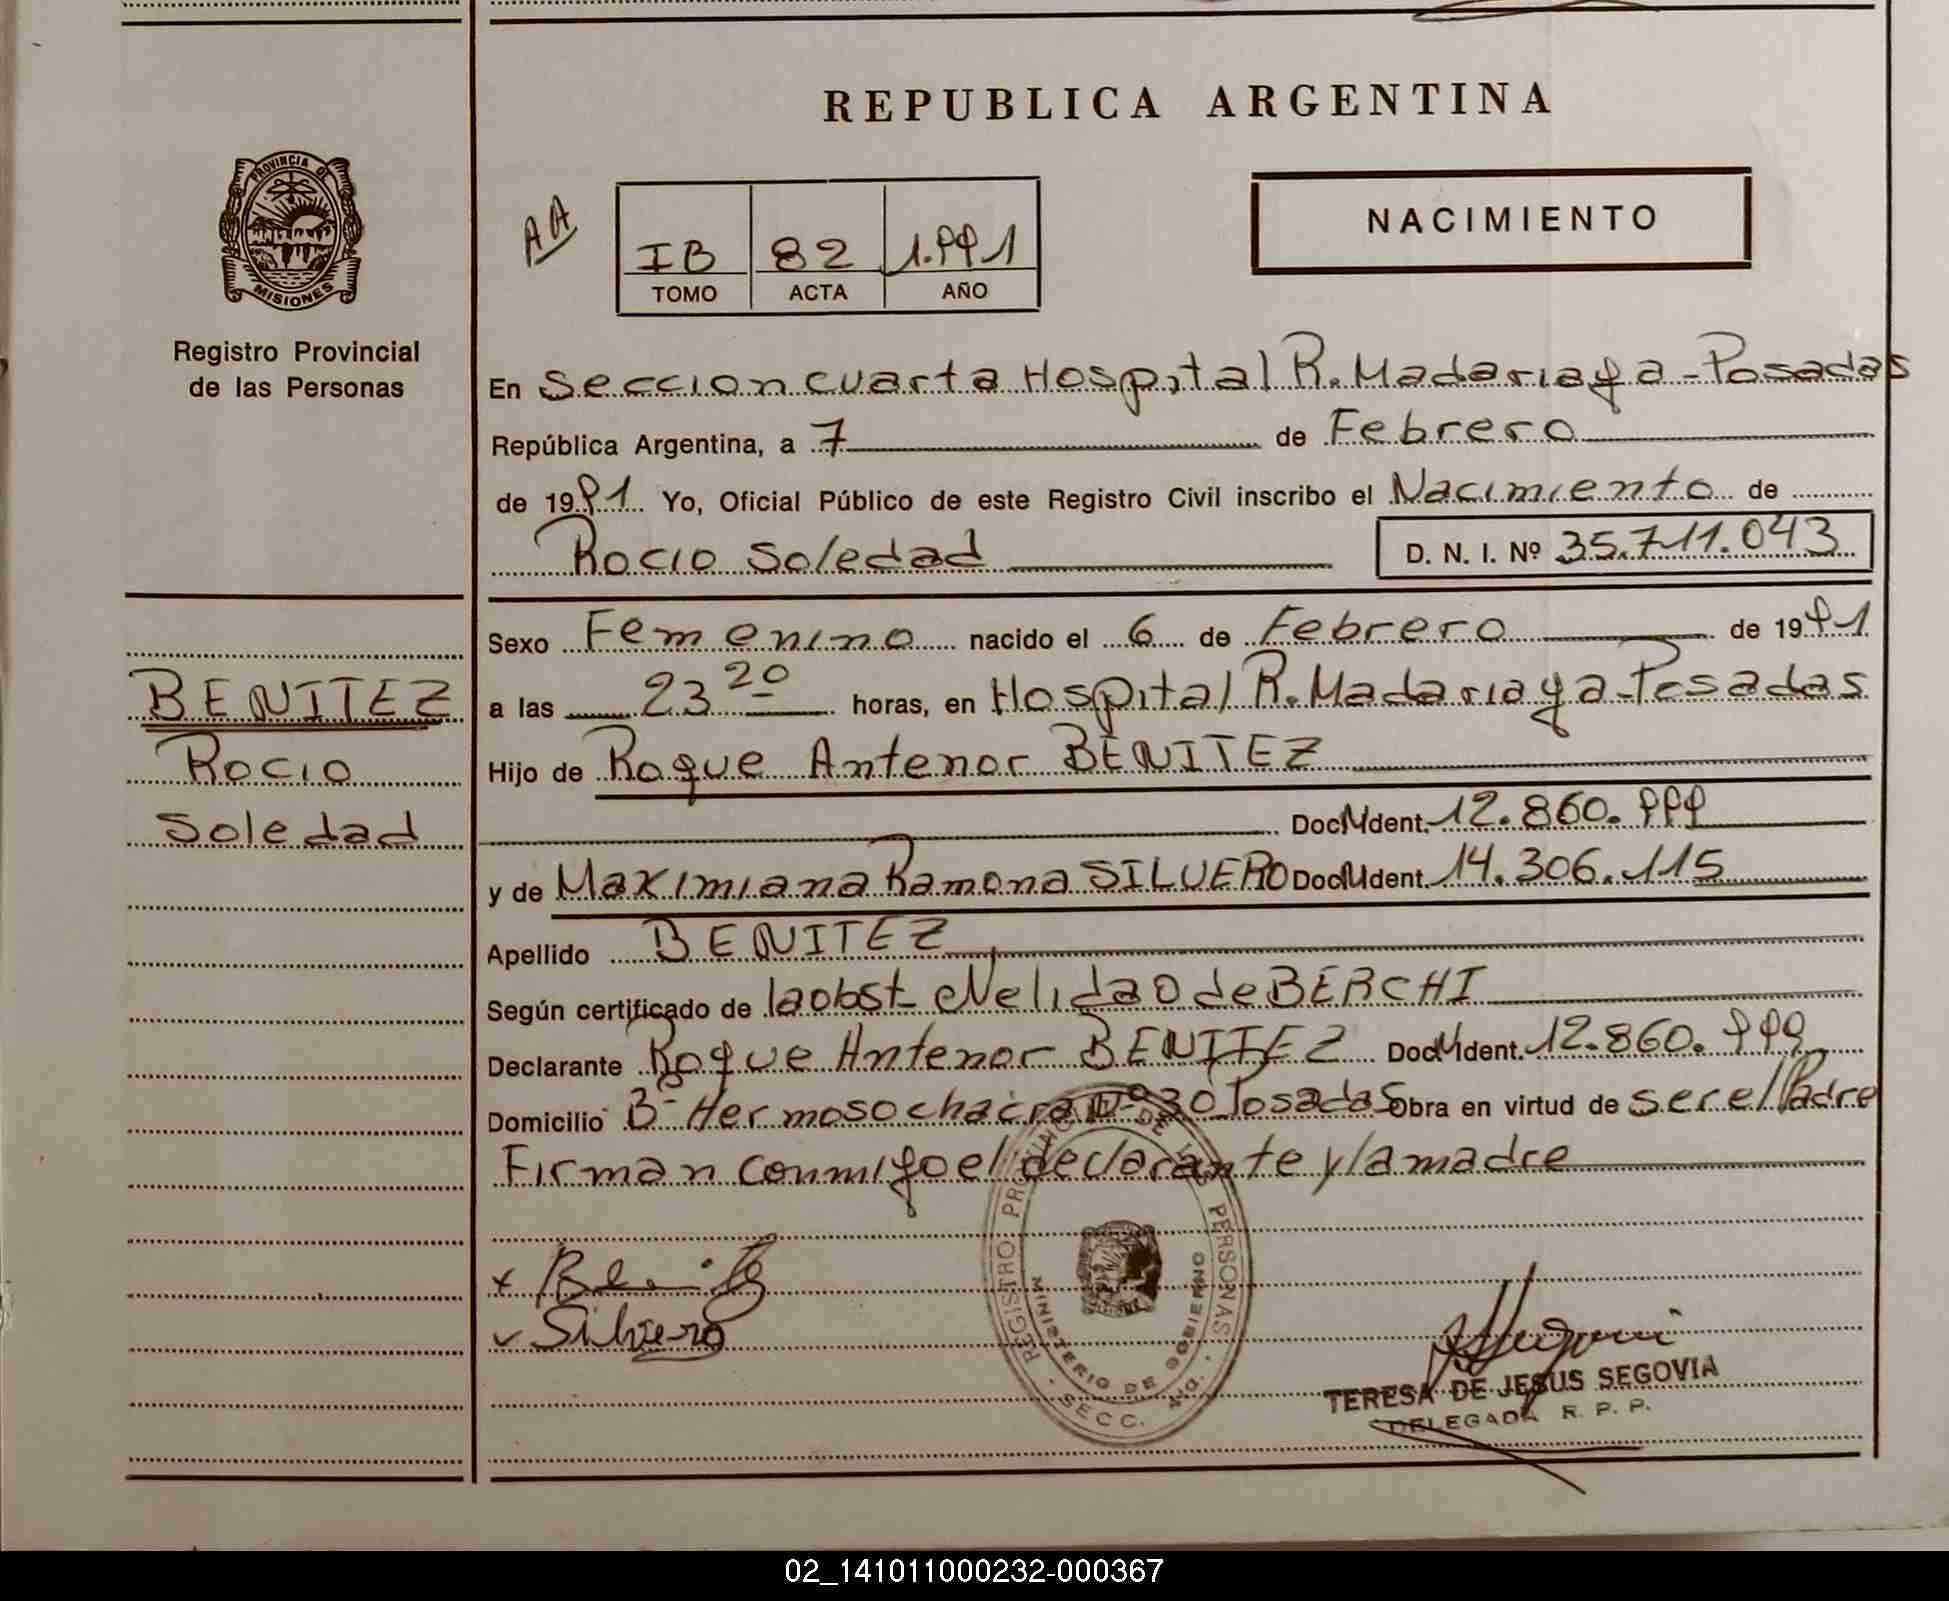 REPUBLICA ARGENTINA
PROVINCIA DE
MISIONES
Registro Provincial
de las Personas
AA
IB 82 1.991
TOMO ACTA AÑO
NACIMIENTO
En Seccion cuarta Hospital R. Madariaga - Posadas
República Argentina, a 7 de Febrero
de 1991 Yo, Oficial Público de este Registro Civil inscribo el Nacimiento de
Rocio Soledad D. N. I. Nº 35.711.043
Sexo Femenino nacido el 6 de Febrero de 1991
a las 23 20 horas, en Hospital R. Madariaga - Posadas
Hijo de Roque Antenor BENITEZ
Doc. Ident. 12.860.999
y de Maximiana Ramona SILUERO Doc. Ident. 14.306.115
Apellido BENITEZ
Según certificado de la obst- Nelida O de BERCHI
Declarante Roque Antenor BENITEZ Doc. Ident. 12.860.999
Domicilio Bº Hermoso chacra nº 30 Posadas Obra en virtud de ser el Padre
Firman conmigo el declarante y la madre
BENITEZ
Rocio
Soledad
x Benitez
Silvero
REGISTRO PROVINCIAL DE LAS PERSONAS
MINISTERIO DE GOBIERNO
SECC. 4ta.
TERESA DE JESUS SEGOVIA
DELEGADA R. P. P.
02_141011000232-000367